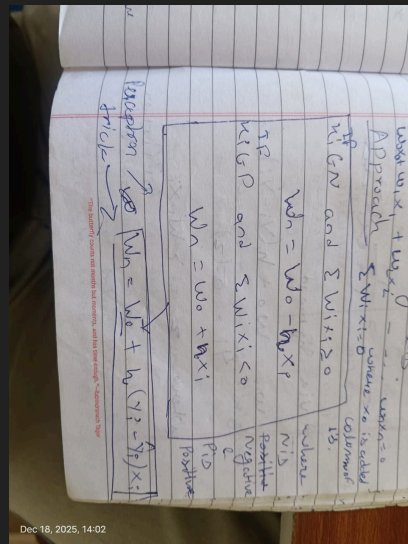 w0x0+w1x1 + w2x2 - - - wnxn = 0
Approach - ΣWixi=0 where x0 is added
column of
1s.
IF xi∈N and ΣWixi≥0
Wn = W0 - ηxi
IF
xi∈P and ΣWixi<0
Wn = W0 + ηxi
where
N is
Negative
&
P is
Positive
Perceptron
trick → Wn = W0 + η(yi - ŷi)xi
"The butterfly counts not months but moments, and has time enough." - Rabindranath Tagore
Dec 18, 2025, 14:02